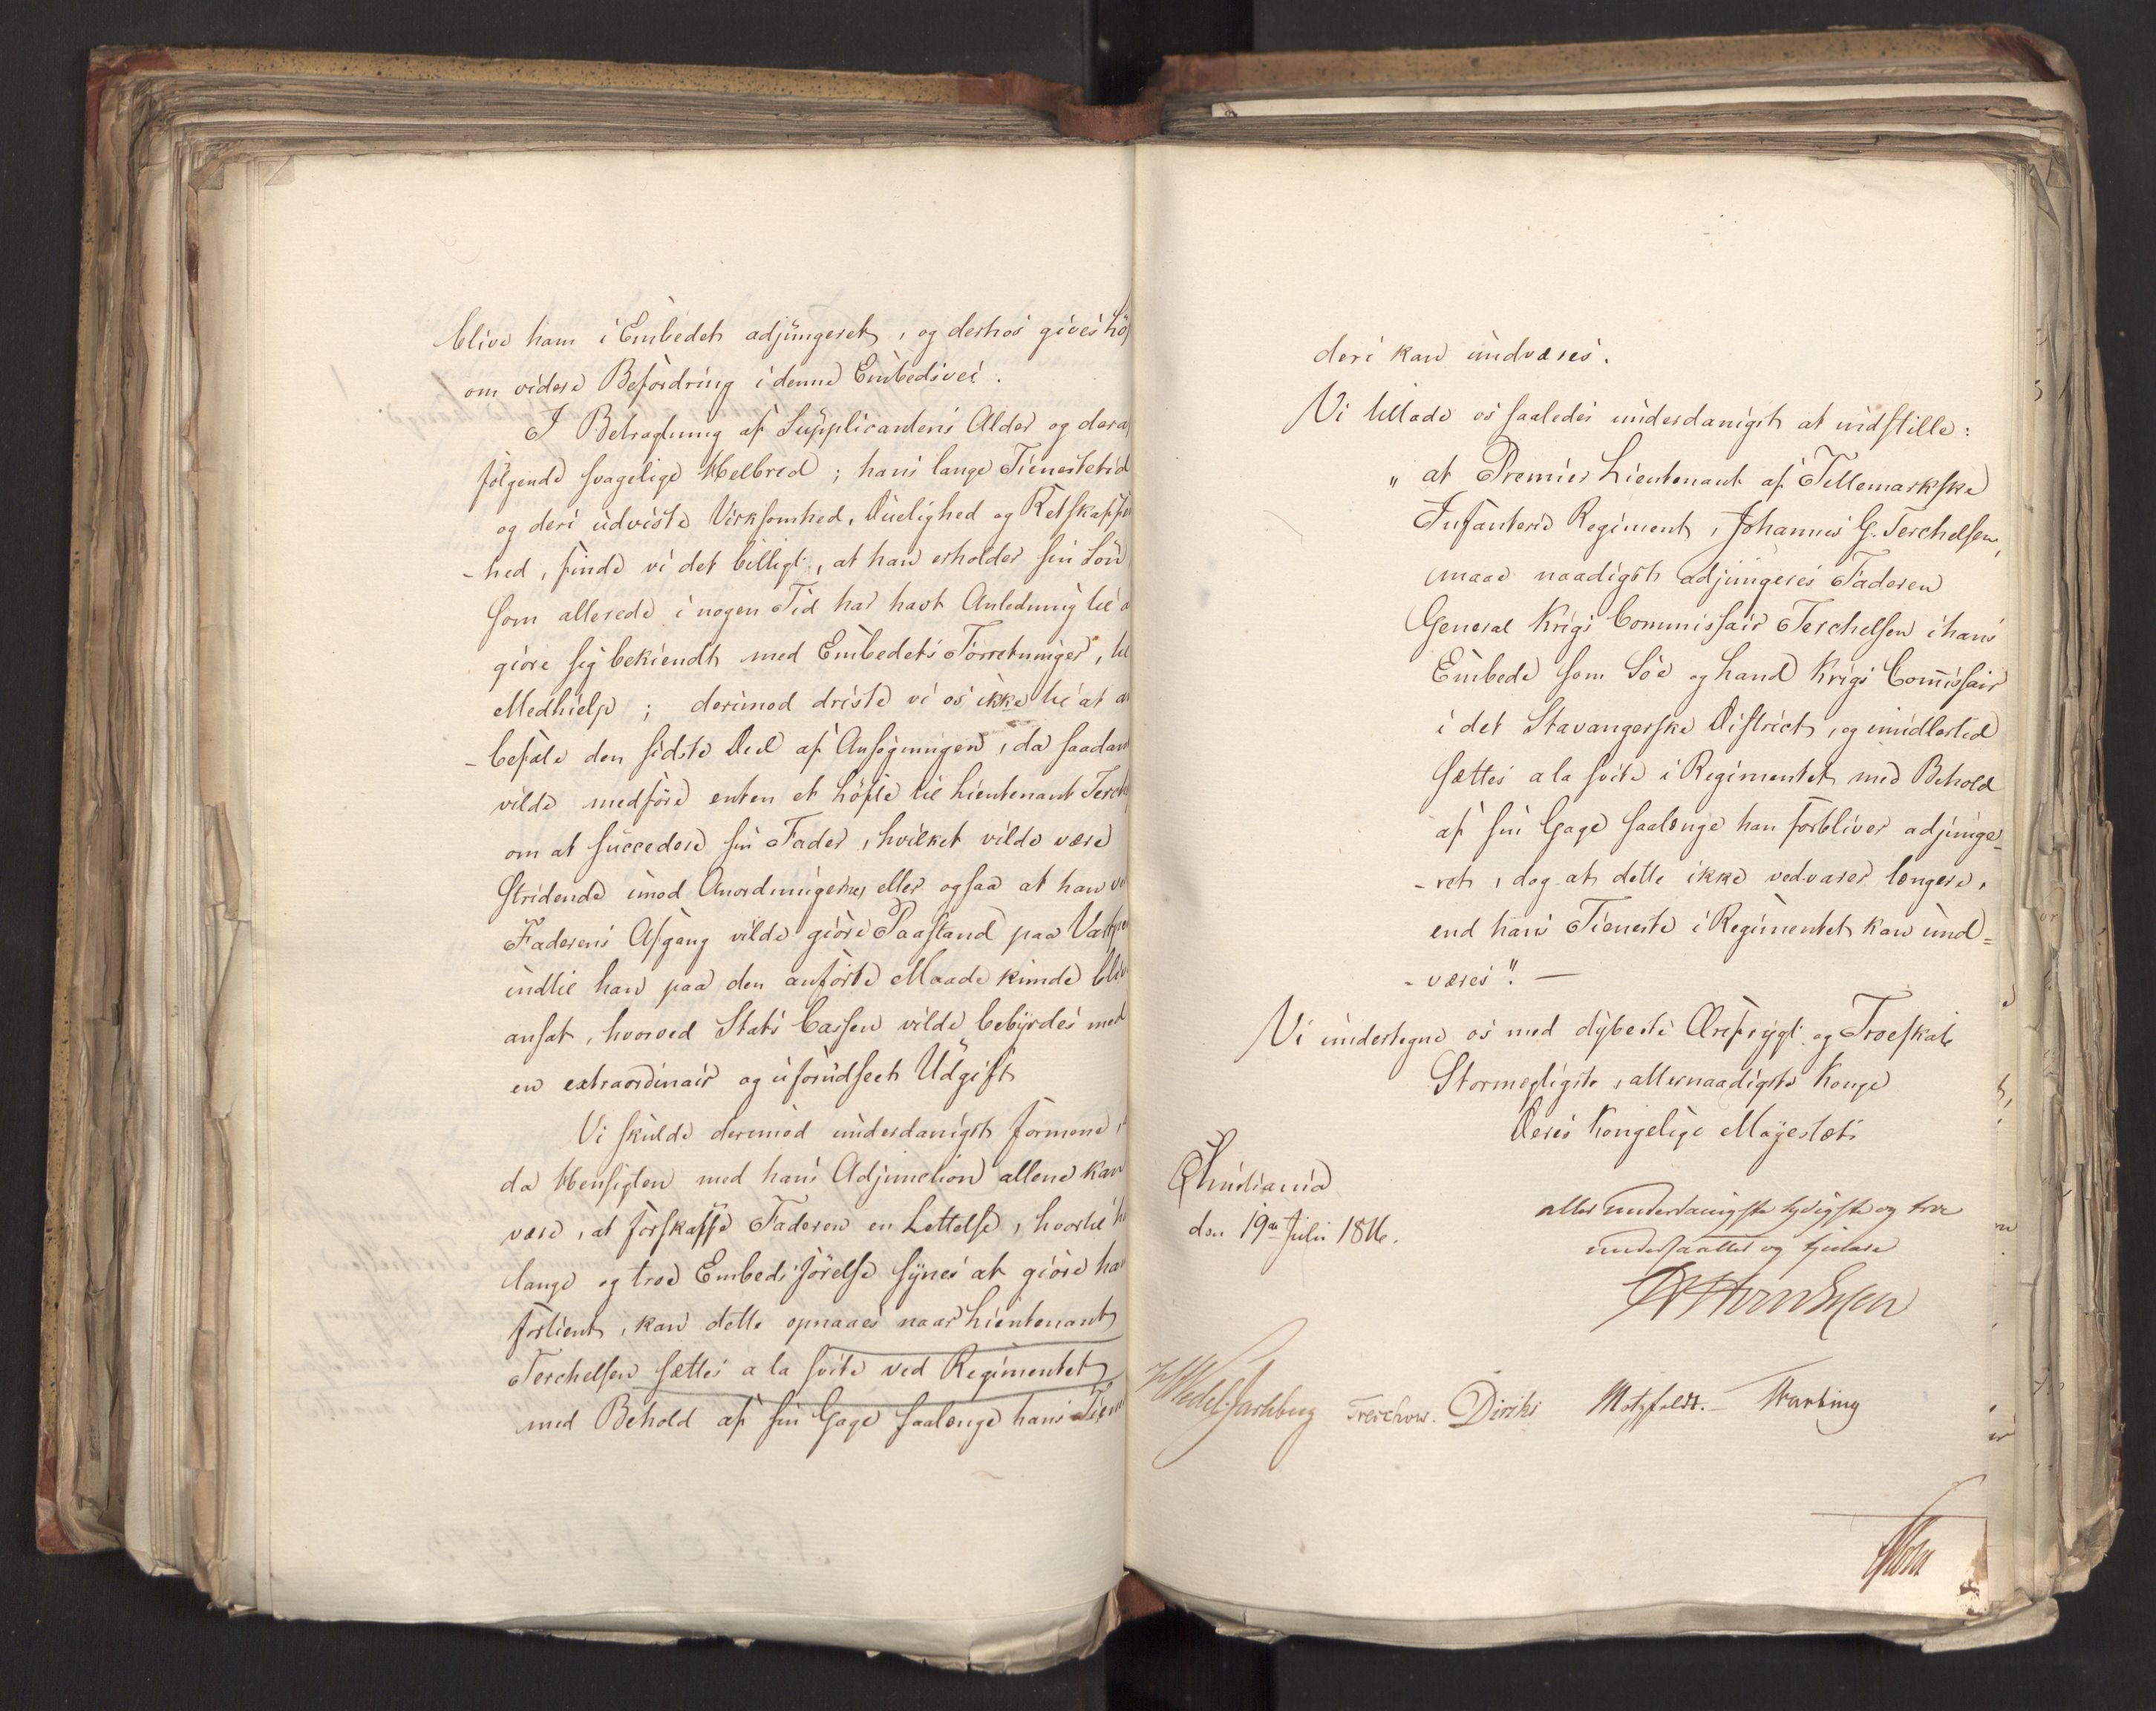 blive ham i Embedet adjungeret, og derhos gives
om videre Befordring i denne Embedsvei.
I Betragtning af Supplicantens Alder og
følgende svagelige Helbred; hans lange Tienestetid
og deri udviste Virksomhed, Duelighed og
-hed, finde vi det billigt, at han erholder sin Søn
som allerede i nogen Tid har havt Anledning til
giøre sig bekiendt med Embedets Forretninger, til
Medhielp; derimod driste vi os ikke til at
-befale den sidste Deel af Ansøgningen, da
vilde medføre enten et Løfte til Lieutenant
om at succedere sin Fader, hvilket vilde være
stridende imod Anordningerne, eller ogsaa at han
Faderens Afgang vilde giøre Paastand paa
indtil han paa den anførte Maade kunde
ansat, hvorved Stats Cassen vilde bebyrdes med
en extraordinair og uforudseet Udgift
Vi skulde derimod underdanigst formene,
da Hensigten med hans Adjunction allene kan
være, at forskaffe Faderen en Lettelse, hvortil
lange og troe Embeds førelse synes at giøre
fortient, kan dette opnaaes naar Lieutenant
Terchelsen sættes a la suite ved Regimentet
med Behold af sin Gage saalænge hans
deri kan undværes.
Vi tillade os saaledes underdanigst at indstille:
" at Premier Lieutenant af Tellemarkske
Infanterie Regiment, Johannes G. Terchelsen,
maae naadigst adjungeres Faderen
General Krigs Commissair Terchelsen i hans
Embede som Söe og Land Krigs Com̄issair
i det Stavangerske District, og imidlertid
sættes a la suite i Regimentet med Behold
af sin Gage saalænge han forbliver adjunge-
-ret, dog at dette ikke vedvarer længere,
end hans Tieneste i Regimentet kan und=
-væres". —
Vi undertegne os med dybeste Ærefrygt og Troeskab
Stormægtigste, allernaadigste Konge
Deres Kongelige Majestæts
Christiania
den 19de Julii 1816.
allerunderdanigste lydigste og troe
undersaatter og tjenere
H Wedel-Jarlsberg Treschow. Diriks Motzfeldt.-